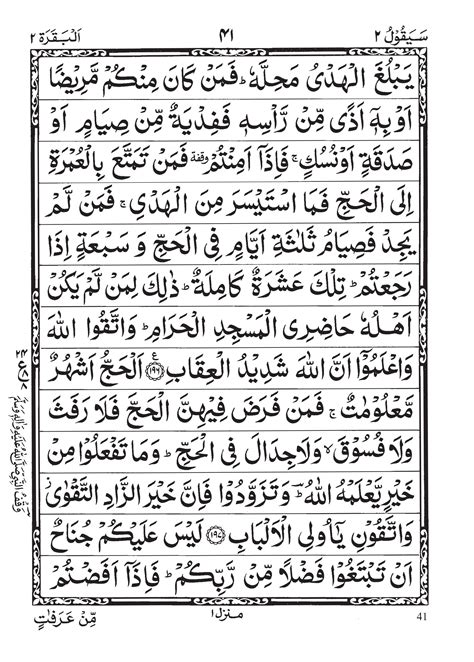 سَيَقُوۡلُ ٢ ٤١ اَلۡبَقَرَة ٢
يَبۡلُغَ الۡهَدۡىُ مَحِلَّهٗ ؕ فَمَنۡ كَانَ مِنۡكُمۡ مَّرِيۡضًا
اَوۡ بِهٖۤ اَذًى مِّنۡ رَّاۡسِهٖ فَفِدۡيَةٌ مِّنۡ صِيَامٍ اَوۡ
صَدَقَةٍ اَوۡ نُسُكٍ ۚ فَاِذَاۤ اَمِنۡتُمۡ وقفة فَمَنۡ تَمَتَّعَ بِالۡعُمۡرَةِ
اِلَى الۡحَجِّ فَمَا اسۡتَيۡسَرَ مِنَ الۡهَدۡىِ ۚ فَمَنۡ لَّمۡ
يَجِدۡ فَصِيَامُ ثَلٰثَةِ اَيَّامٍ فِى الۡحَجِّ وَ سَبۡعَةٍ اِذَا
رَجَعۡتُمۡ ؕ تِلۡكَ عَشَرَةٌ كَامِلَةٌ ؕ ذٰلِكَ لِمَنۡ لَّمۡ يَكُنۡ
اَهۡلُهٗ حَاضِرِى الۡمَسۡجِدِ الۡحَرَامِ ؕ وَاتَّقُوا اللّٰهَ
وَاعۡلَمُوۡۤا اَنَّ اللّٰهَ شَدِيۡدُ الۡعِقَابِ ﴿١٩٦﴾ اَلۡحَجُّ اَشۡهُرٌ
مَّعۡلُوۡمٰتٌ ۚ فَمَنۡ فَرَضَ فِيۡهِنَّ الۡحَجَّ فَلَا رَفَثَ
وَلَا فُسُوۡقَ ۙ وَلَا جِدَالَ فِى الۡحَجِّ ؕ وَمَا تَفۡعَلُوۡا مِنۡ
خَيۡرٍ يَّعۡلَمۡهُ اللّٰهُ ؕ وَتَزَوَّدُوۡا فَاِنَّ خَيۡرَ الزَّادِ التَّقۡوٰى
وَاتَّقُوۡنِ يٰۤاُولِى الۡاَلۡبَابِ ﴿١٩٧﴾ لَيۡسَ عَلَيۡكُمۡ جُنَاحٌ
اَنۡ تَبۡتَغُوۡا فَضۡلًا مِّنۡ رَّبِّكُمۡ ؕ فَاِذَاۤ اَفَضۡتُمۡ
وقف النبي صلى الله عليه وآله وسلم
منزل ١
مِّنۡ عَرَفٰتٍ
41